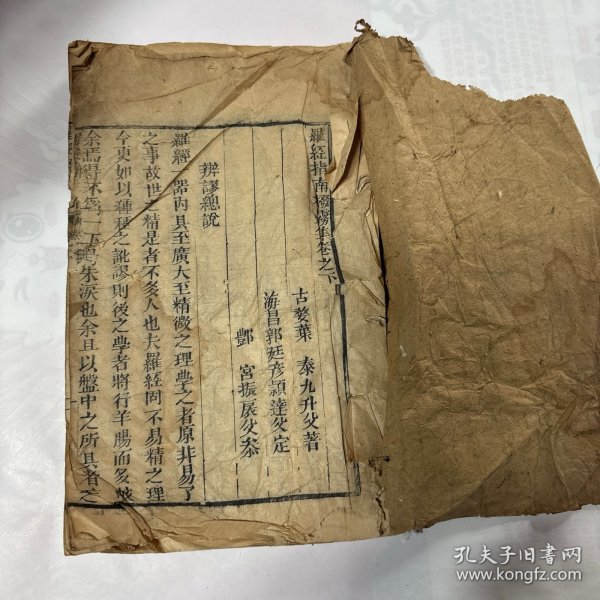 羅經指南撥霧集卷之下
古婺葉 泰九升父著
游昌郭廷彥頴達父定
鄷 宮振宸父叅
辨謬總說
羅經一器內具至廣大至精微之理學之者原非易了
之事故世之精是者不多人也夫羅經同不易精之理
今更如以種種之訛謬則後之學者將行羊腸而多岐
余焉得不爲一下鳴朱淚也余且以盤中之所具者之
孔夫子旧书网
www.kongfz.com